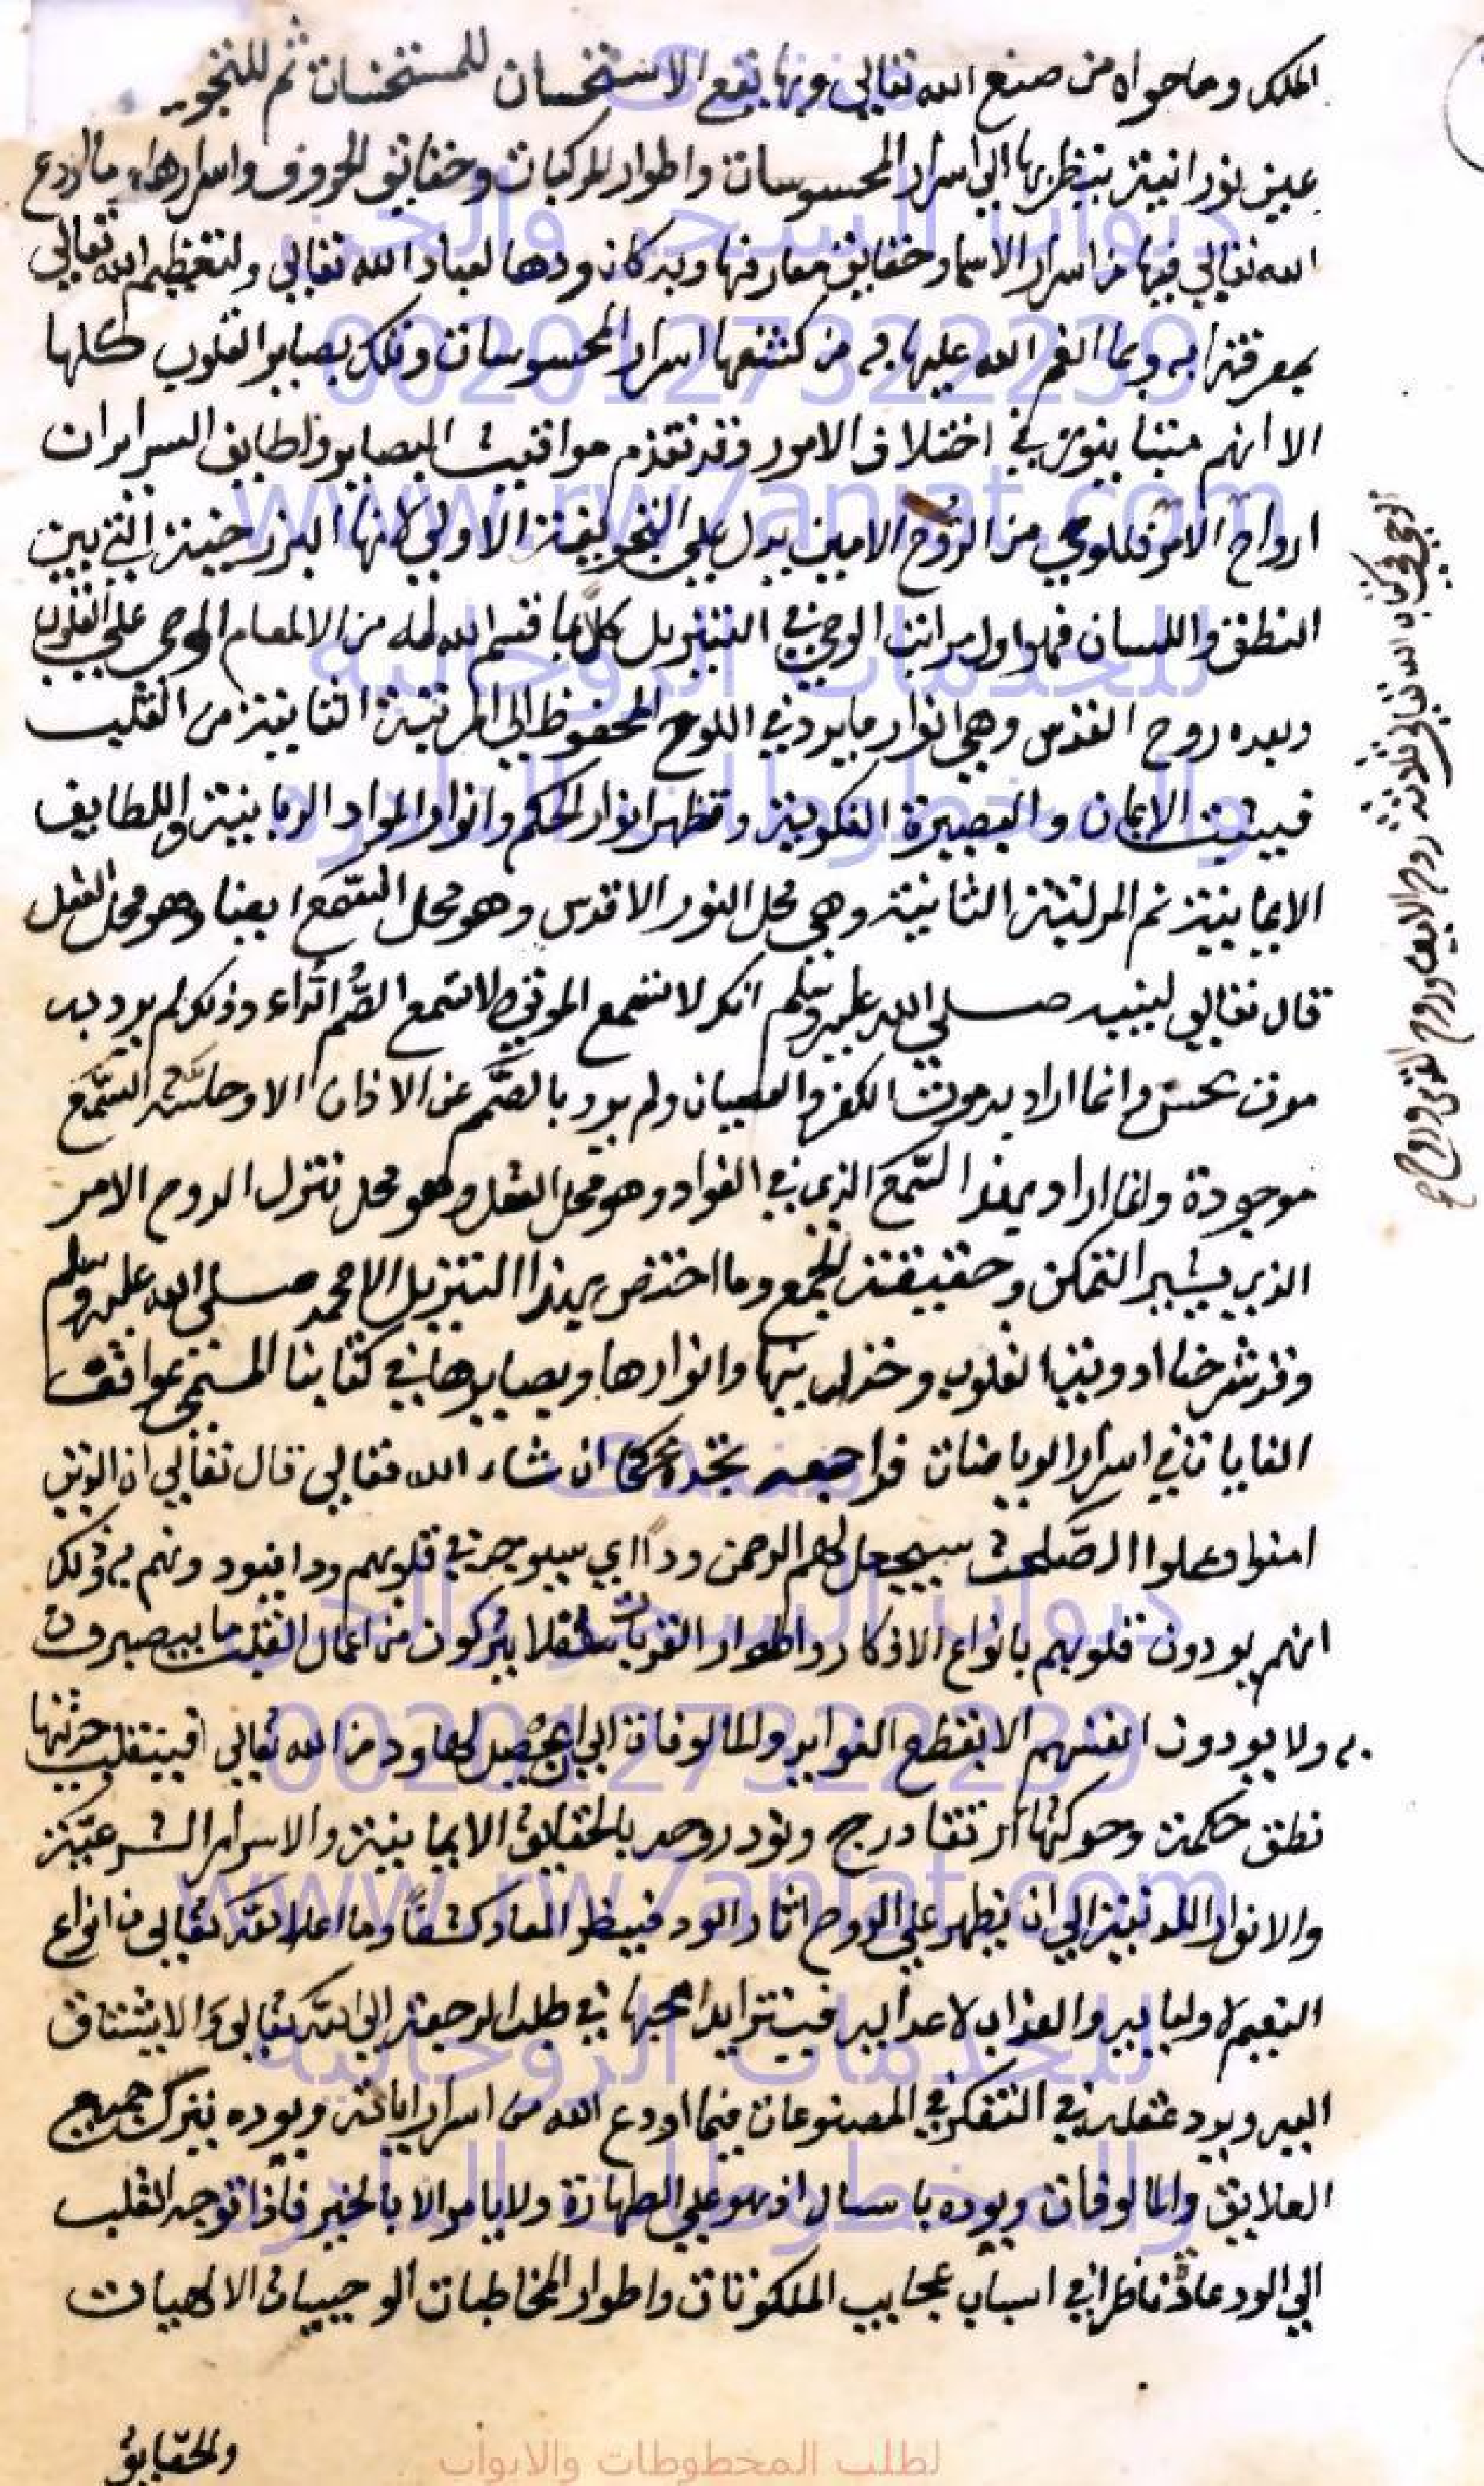 الملك وما حواه من صنع الله تعالى وبها يقع الاستحسان للمستحسنات ثم للتجويف
عين نورانية ينظر بها الى اسرار المحسوسات واطوار المركبات وحقايق الحروف واسرارها وما اودع
الله تعالى فيها من اسرار الاسما وحقايق معارفها وبه كان ودها لعباد الله تعالى ولتعظيم الله تعالى
بمعرفته به وبما انعم الله عليها به من كشفها اسرار المحسوسات وتلك بصاير القلوب كلها
الا انهم متباينون في اختلاف الامور وقد تقدم مواقيت البصاير ولطايف السراير ان
ارواح الامر فللوحي من الروح الامين يدل على التجويفة الاولى لانها البرزخية التي بين
النطق واللسان فهو اول مراتب الوحي في التنزيل كلا بما قسم الله له من الالهام الوحي على القلوب
وبعده روح القدس وهي انوار ما يرد في اللوح المحفوظ الى المرتبة الثانية من القلب
فيثبت الايمان والبصيرة التكوينة وتظهر انوار الحكم وانوار المواد الربانية واللطايف
الايمانية ثم المرتبة الثانية وهي محل النور الاقدس وهو محل السمع ايضا وهو محل العقل
قال تعالى لنبيه صلى الله عليه وسلم انك لا تسمع الموتى ولا تسمع الصم الدعاء وذلك لم يرد به
موت بحس وانما اراد به موت الكفر والعصيان ولم يرد بالصمم عن الاذان الا وحاسة السمع
موجودة وانما اراد بهذا السمع الذي في الفواد وهو محل العقل وهو محل تنزل الروح الامر
الذي يشير التمكن وحقيقة الجمع وما اختص بهذا التنزيل الا محمد صلى الله عليه وسلم
وقد شرحنا ادوية القلوب وخزاينها وانوارها وبصايرها في كتابنا المسمى بمواقف
الغايات في اسرار الرياضات فراجعه تجده محكما ان شاء الله تعالى قال تعالى ان الذين
امنوا وعملوا الصلحت سيجعل لهم الرحمن ودا اي سيوجد في قلوبهم ودا فيود ونهم به وذلك
انهم يودون قلوبهم بانواع الاذكار واطوار القربات فلا يتركون من اعمال القلب ما يبصرون
به ولا يودون انفسهم الا بقطع العوايد والمالوفات الى ان يحصل لها ود من الله تعالى فينقلب حزنها
نطق حكمة وحركتها ارتقا درج وتود روحه بالحقايق الايمانية والاسرار الشرعية
والانوار اللدنية الى ان يظهر على الروح اثار الود فينظر المعاد كشفا وما اعد الله تعالى من انواع
النعيم لاوليايه والعذاب لاعدايه فيتزايد حبها في طلب الرجعة الى الله تعالى والاشتياق
اليه ويود عقله في التفكر في المصنوعات فيما اودع الله من اسرار اياته ويوده بترك جميع
العلايق والمالوفات ويوده بارسال اذ هو على الطهارة ولا يامر الا بالخير فاذا توجه القلب
الى الود عاد ناظرا في اسباب عجايب الملكوتات واطوار المخاطبات الوحييات الالهيات
والحقايق
الوحي في كتاب الله تعالى ثلاثة روح الامين وروح القدس وروح
منتدى
ديوان السحر والجن
00201273222239
www.rw7aniat.com
للخدمات الروحانية
والمخطوطات النادره
منتدى
ديوان السحر والجن
00201273222239
www.rw7aniat.com
للخدمات الروحانية
والمخطوطات النادره
لطلب المخطوطات والابواب